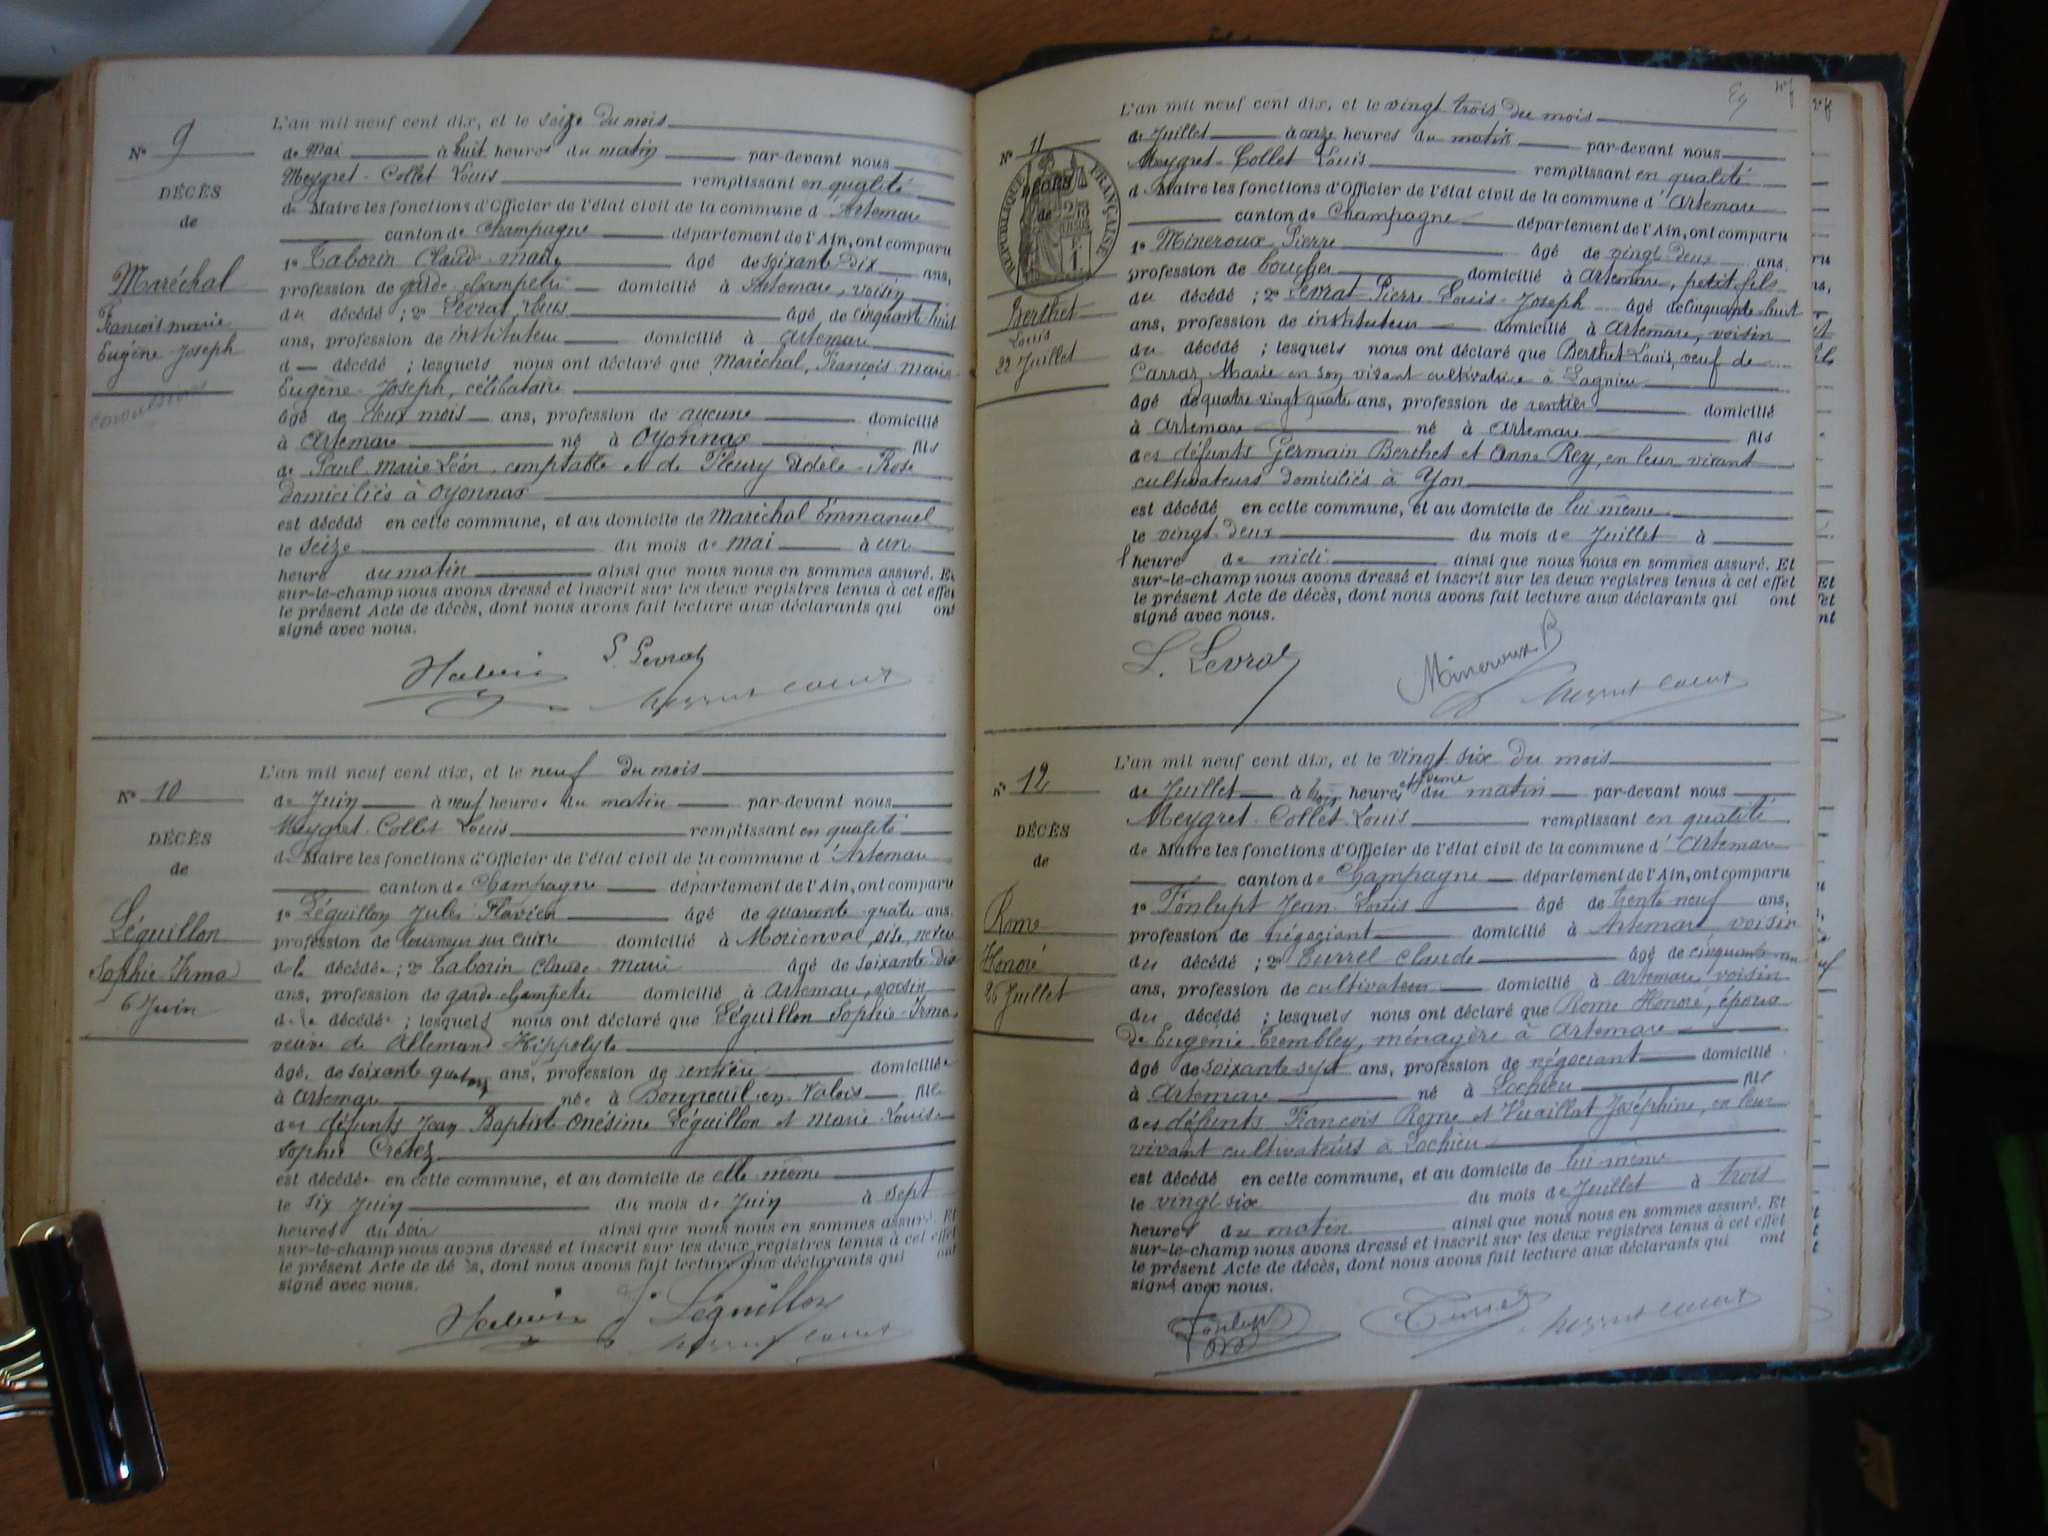 Nº 9
DÉCÈS
de
Maréchal
François marie
Eugène-Joseph
L'an mil neuf cent dix, et le seize du mois
de Mai à huit heures du matin par-devant nous
Meygret-Collet Louis remplissant en qualité
de Maire les fonctions d'Officier de l'état civil de la commune d'Artemare
canton de Champagne département de l'Ain, ont comparu
1º Taborin Claude-marie âgé de soixante-dix ans,
profession de garde champetre domicilié à Artemare, voisin
du décédé ; 2º Levrat Louis âgé de cinquante huit
ans, profession de instituteur domicilié à Artemare
d décédé ; lesquels nous ont déclaré que Maréchal, François marie
Eugène-Joseph, célibataire
âgé de deux mois ans, profession de aucune domicilié
à Artemare né à Oyonnax fils
de Paul-Marie Léon, comptable et de Fleury Adèle-Rose
domiciliés à Oyonnax
est décédé en cette commune, et au domicile de Maréchal Emmanuel
le seize du mois de Mai à un
heure du matin ainsi que nous nous en sommes assuré. Et
sur-le-champ nous avons dressé et inscrit sur les deux registres tenus à cet effet
le présent Acte de décès, dont nous avons fait lecture aux déclarants qui ont
signé avec nous.
L. Levrat
Nº 10
DÉCÈS
de
Léguillon
Sophie-Irma
6 Juin
L'an mil neuf cent dix, et le neuf du mois
de Juin à neuf heures du matin par-devant nous
Meygret-Collet Louis remplissant en qualité
de Maire les fonctions d'Officier de l'état civil de la commune d'Artemare
canton de Champagne département de l'Ain, ont comparu
1º Léguillon Jules Flavien âgé de quarante-quatre ans.
profession de tourneur sur cuivre domicilié à Morienval, oise, neveu
de la décédée ; 2º Taborin Claude-marie âgé de soixante-dix
ans, profession de garde champetre domicilié à Artemare, voisin
de la décédée ; lesquels nous ont déclaré que Léguillon Sophie-Irma
veuve de Allemand Hippolyte
âgée de soixante quatorze ans, profession de rentière domiciliée
à Artemare née à Bonneuil-en-Valois fille
des défunts Jean Baptiste Onésime Léguillon et Marie-Louise
Sophie Crétez
est décédée en cette commune, et au domicile de elle même
le six Juin du mois de Juin à sept
heures du soir ainsi que nous nous en sommes assuré. Et
sur-le-champ nous avons dressé et inscrit sur les deux registres tenus à cet effet
le présent Acte de dé s, dont nous avons fait lecture aux déclarants qui ont
signé avec nous.
J. Léguillon
Nº 11
DÉCÈS
de
RÉPUBLIQUE FRANÇAISE
Berthet
Louis
22 Juillet
L'an mil neuf cent dix, et le vingt trois du mois
de Juillet à onze heures du matin par-devant nous
Meygret-Collet Louis remplissant en qualité
d Maire les fonctions d'Officier de l'état civil de la commune d'Artemare
canton de Champagne département de l'Ain, ont comparu
1º Mineroux Pierre âgé de vingt-deux ans.
profession de boucher domicilié à Artemare, petit fils
du décédé ; 2º Levrat Pierre Louis-Joseph âgé de cinquante-huit
ans, profession de instituteur domicilié à Artemare, voisin
du décédé ; lesquels nous ont déclaré que Berthet Louis, veuf de
Carraz Marie en son vivant cultivatrice à Lagnieu
âgé de quatre vingt quatre ans, profession de rentier domicilié
à Artemare né à Artemare fils
des défunts Germain Berthet et Anne Rey, en leur vivant
cultivateurs domiciliés à Yon
est décédé en cette commune, et au domicile de lui même
le vingt-deux du mois de Juillet à
1 heure de midi ainsi que nous nous en sommes assuré. Et
sur-le-champ nous avons dressé et inscrit sur les deux registres tenus à cet effet
le présent Acte de décès, dont nous avons fait lecture aux déclarants qui ont
signé avec nous.
L. Levrat Mineroux P
Nº 12
DÉCÈS
de
Rome
Honoré
26 Juillet
L'an mil neuf cent dix, et le vingt six du mois
de Juillet à huit heures et demie du matin par-devant nous
Meygret-Collet Louis remplissant en qualité
de Maire les fonctions d'Officier de l'état civil de la commune d'Artemare
canton de Champagne département de l'Ain, ont comparu
1º Fonlupt Jean-Louis âgé de trente neuf ans,
profession de négociant domicilié à Artemare, voisin
du décédé ; 2º Turrel Claude âgé de cinquante-un
ans, profession de cultivateur domicilié à Artemare, voisin
du décédé ; lesquels nous ont déclaré que Rome Honoré, époux
de Eugénie Trembley, ménagère à Artemare
âgé de soixante sept ans, profession de négociant domicilié
à Artemare né à Lochieu fils
des défunts François Rome et Vuaillat Joséphine, en leur
vivant cultivateurs à Lochieu
est décédé en cette commune, et au domicile de lui-même
le vingt six du mois de Juillet à trois
heures du matin ainsi que nous nous en sommes assuré. Et
sur-le-champ nous avons dressé et inscrit sur les deux registres tenus à cet effet
le présent Acte de décès, dont nous avons fait lecture aux déclarants qui ont
signé avec nous.